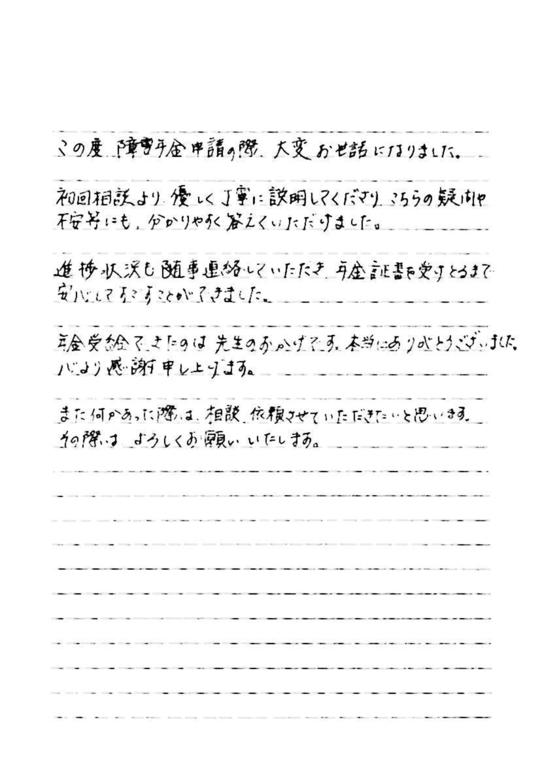 この度、障害年金申請の際、大変お世話になりました。
初回相談より、優しく丁寧に説明してくださり、こちらの疑問や
不安等にも、分かりやすく答えていただけました。
進捗状況も随事連絡していただき、年金証書を受けとるまで
安心してすごすことができました。
年金受給できたのは先生のおかげです。本当にありがとうございました。
心より感謝申し上げます。
また何かあった際は、相談、依頼させていただきたいと思います。
その際は よろしくお願いいたします。